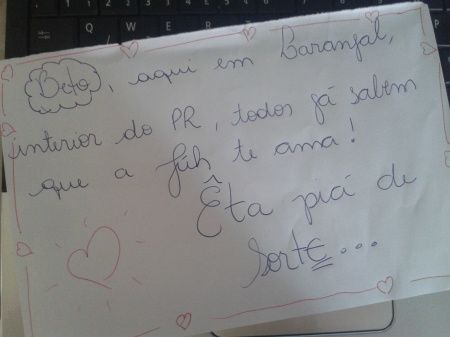 Beto, aqui em Laranjal,
interior do PR, todos já sabem
que a Júh te ama!
Êta piá de
sorte...